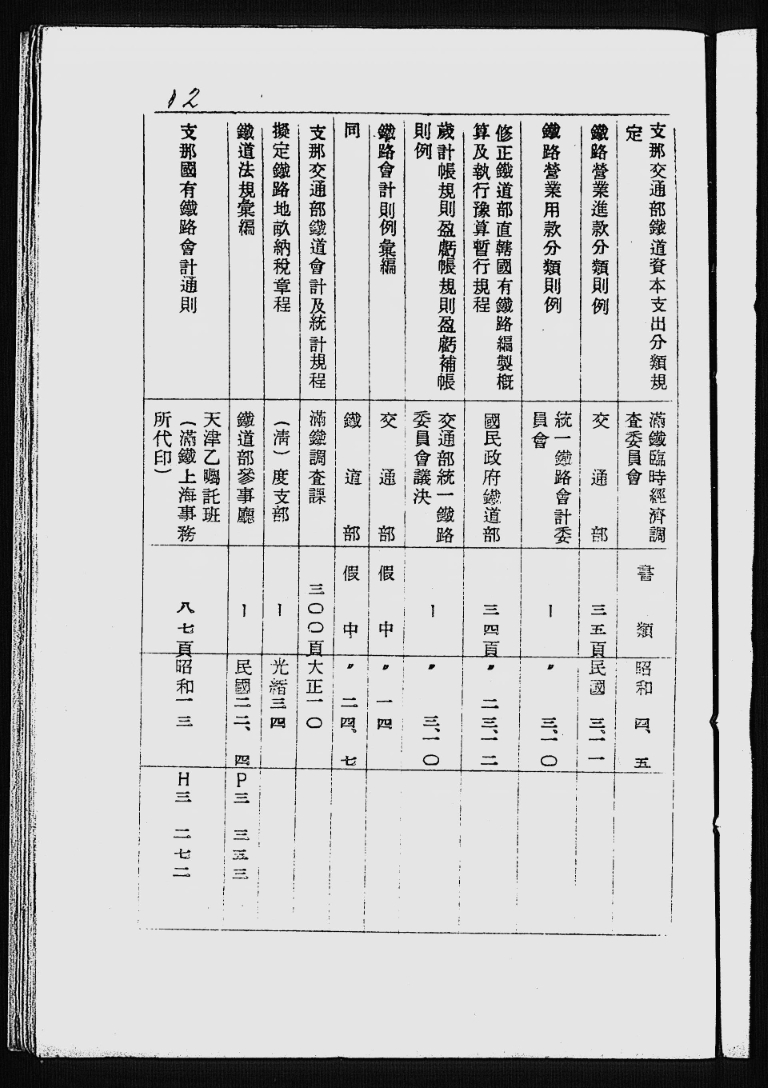 12
支那交通部鐵道資本支出分類規
定
滿鐵臨時經濟調
査委員會
書類
昭和四、五
鐵路營業進款分類則例
交通部
三五頁
民國三、一一
鐵路營業用款分類則例
統一鐵路會計委
員會
ー
〃三、一〇
修正鐵道部直轄國有鐵路編製槪
算及執行豫算暫行規程
國民政府鐵道部
三四頁
〃二三、一二
歲計帳規則盈虧帳規則盈虧補帳
則例
交通部統一鐵路
委員會議決
ー
〃三、一〇
鐵路會計則例彙編
交通部
假中
〃一四
同
鐵道部
假中
〃二四、七
支那交通部鐵道會計及統計規程
滿鐵調査課
三〇〇頁
大正一〇
擬定鐵路地畝納稅章程
（淸）度支部
ー
光緖三四
鐵道法規彙編
鐵道部參事廳
ー
民國二二、四
P三 三五三
支那國有鐵路會計通則
天津乙囑託班
（滿鐵上海事務
所代印）
八七頁
昭和一三
H三 二七二